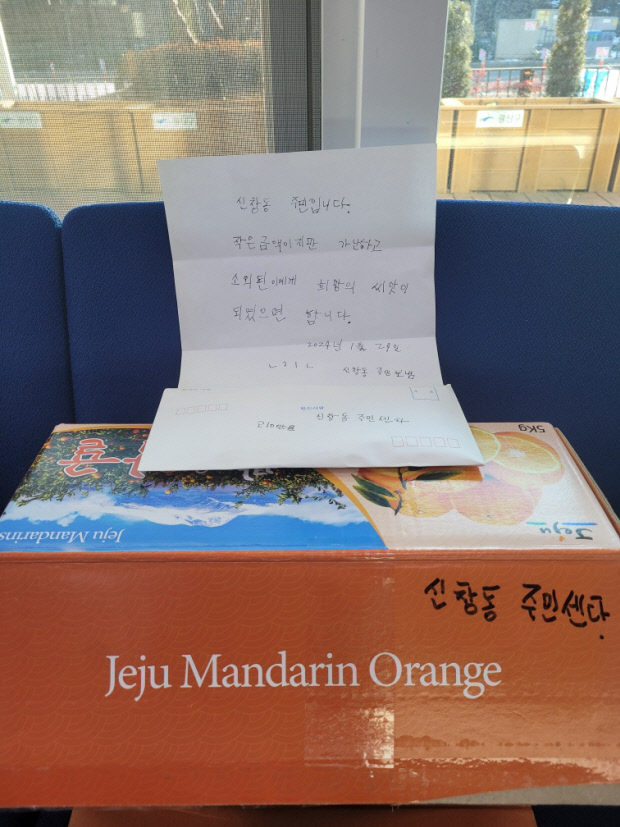 광산구
신창동 주민입니다.
작은 금액이지만 가난하고
소외된 이에게 희망의 씨앗이
되었으면 합니다.
2024년 1월 29일
신창동 주민 보냄
신창동 주민센타
5kg
Jeju Mandarins
Jeju
신창동 주민센타
Jeju Mandarin Orange